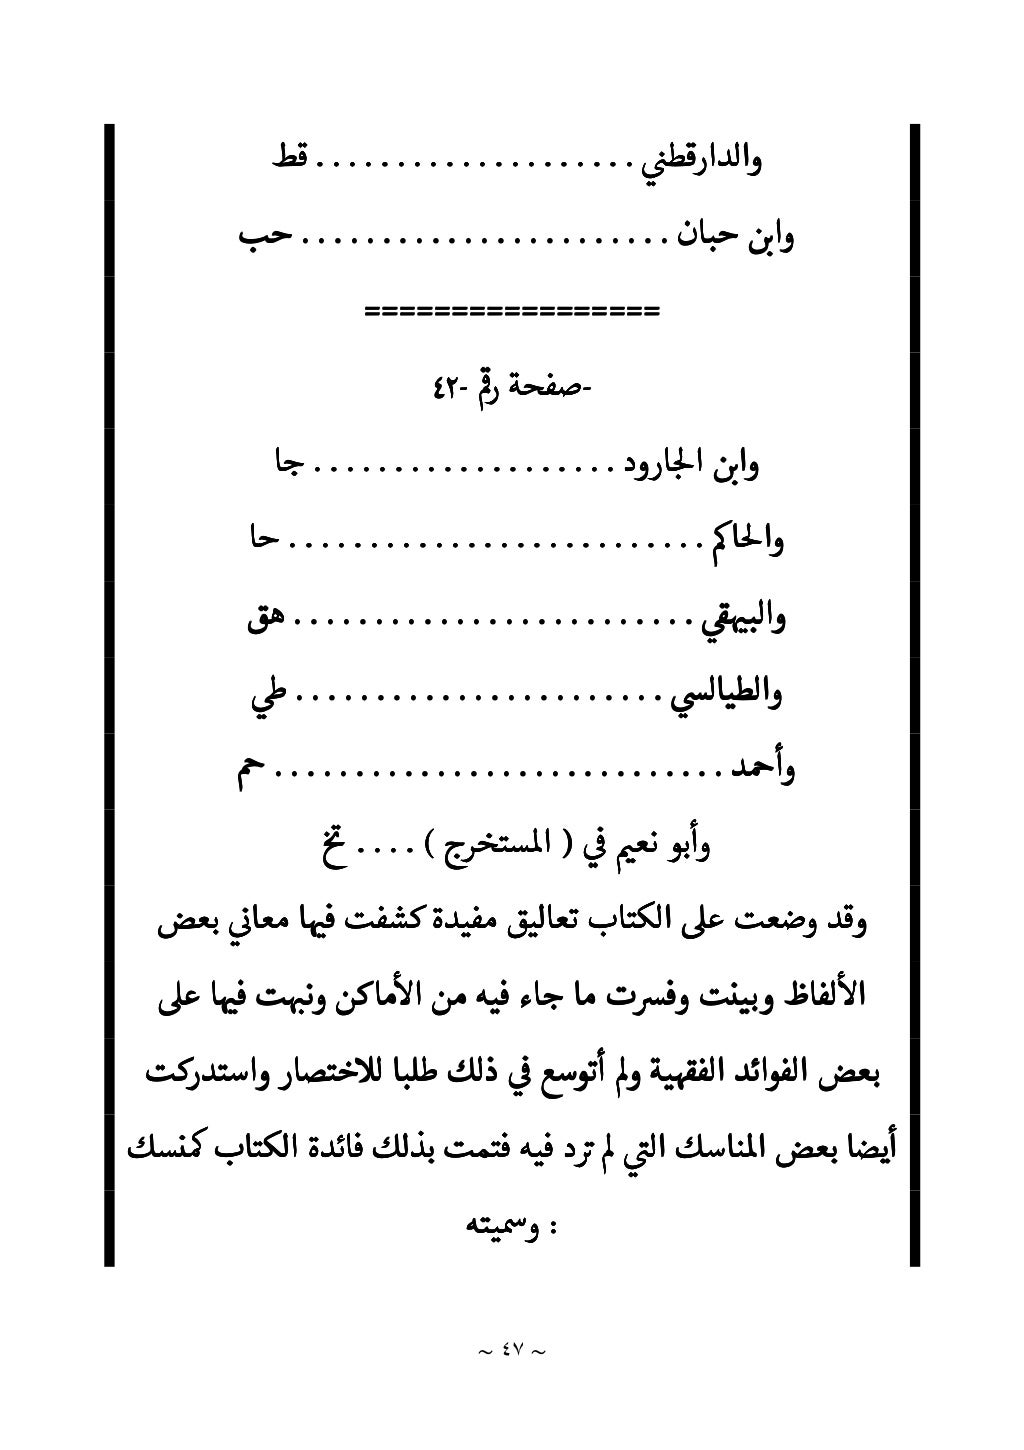 والدارقطني . . . . . . . . . . . . . . . . . . . . قط
وابن حبان . . . . . . . . . . . . . . . . . . . . . . . حب
=================
-صفحة رقم -٤٢
وابن الجارود . . . . . . . . . . . . . . . . . . . جا
والحاكم . . . . . . . . . . . . . . . . . . . . . . . . . . حا
والبيهقي . . . . . . . . . . . . . . . . . . . . . . . . . هق
والطيالسي . . . . . . . . . . . . . . . . . . . . . . . طي
وأحمد . . . . . . . . . . . . . . . . . . . . . . . . . . . . حم
وأبو نعيم في ( المستخرج ) . . . . تخ
وقد وضعت على الكتاب تعاليق مفيدة كشفت فيها معاني بعض
الألفاظ وبينت وفسرت ما جاء فيه من الأماكن ونبهت فيها على
بعض الفوائد الفقهية ولم أتوسع في ذلك طلبا للاختصار واستدركت
أيضا بعض المناسك التي لم ترد فيه فتمت بذلك فائدة الكتاب كمنسك
: وسميته
~ ٤٧ ~